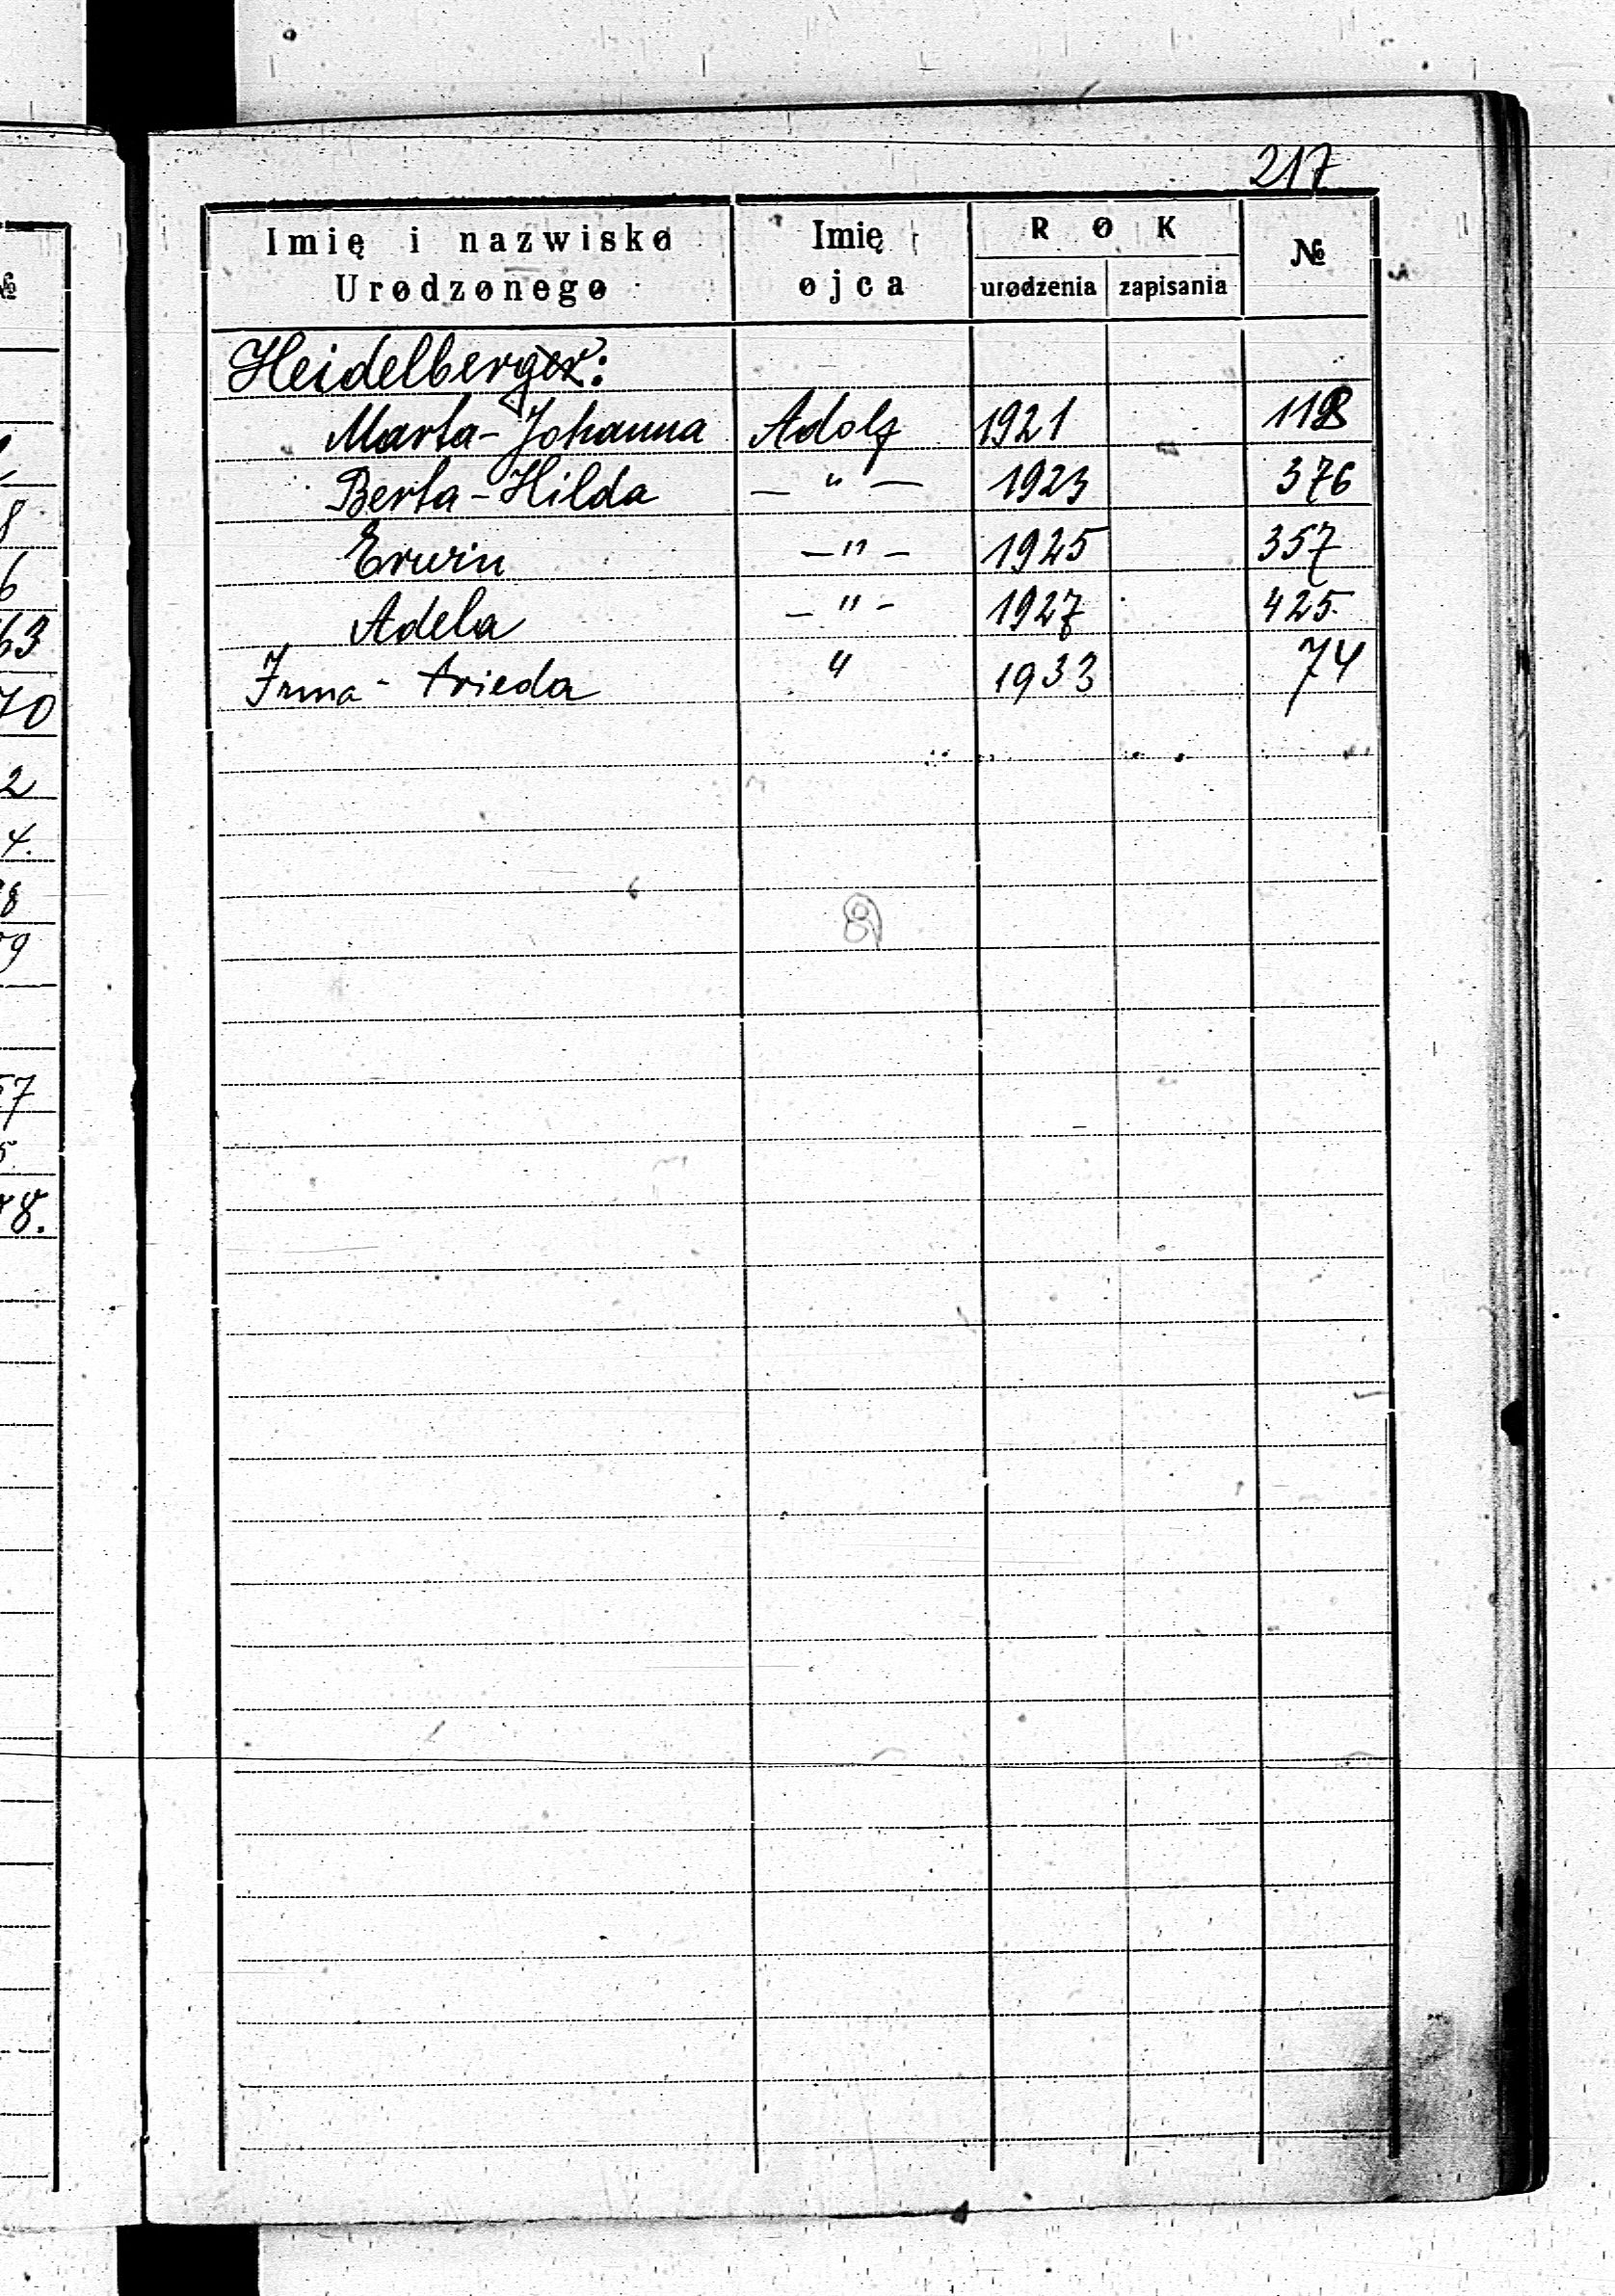 217
Imię i nazwisko Urodzonego Imię ojca ROK urodzenia zapisania №
Heidelberger:
Marta-Johanna Adolf 1921 118
Berta-Hilda — " — 1923 376
Erwin — " — 1925 357
Adela — " — 1927 425
Irma - Frieda " 1933 74
№
8
6
63
70
2
4.
8
9
57
5
48.